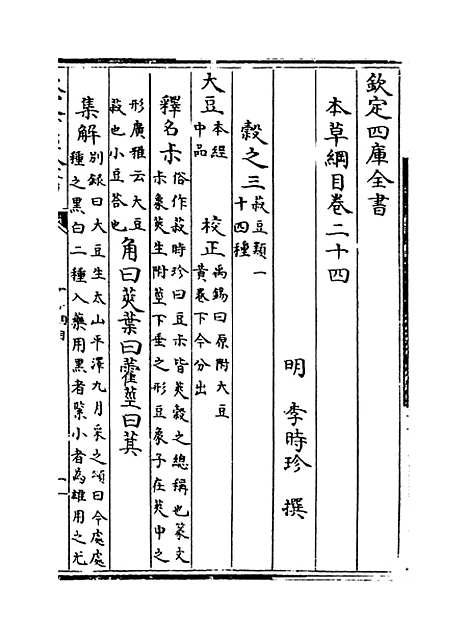 欽定四庫全書
本草綱目卷二十四
明 李時珍 撰
穀之三菽豆類一
十四種
大豆本經
中品 校正禹錫曰原附大豆
黄卷下今分出
釋名尗俗作菽時珍曰豆尗皆莢榖之總稱也篆文
尗象莢生附莖下垂之形豆象子在莢中之
形廣雅云大豆
菽也小豆荅也角曰莢葉曰藿莖曰萁
集解别録曰大豆生太山平澤九月采之頌曰今處處
種之黑白二種入藥用黑者緊小者為雄用之尤